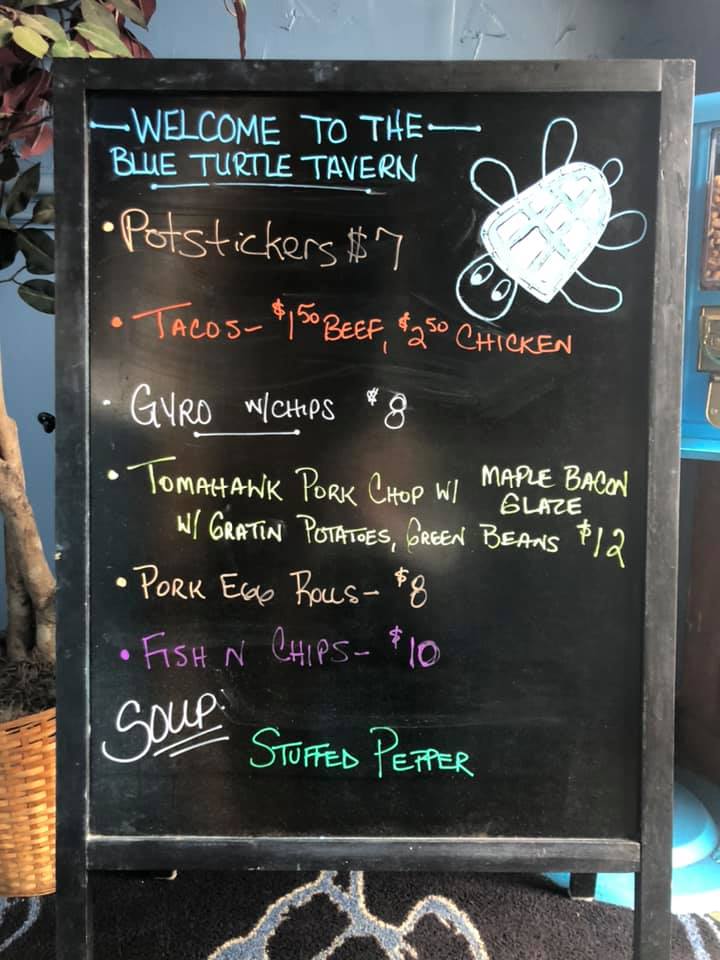 WELCOME TO THE
BLUE TURTLE TAVERN
• Potstickers $7
• TACOS- $1.50 BEEF, $2.50 CHICKEN
• GYRO W/CHIPS $8
• TOMAHAWK PORK CHOP W/ MAPLE BACON
GLAZE
W/ GRATIN POTATOES, GREEN BEANS $12
• PORK EGG ROLLS- $8
• FISH N CHIPS- $10
SOUP:
STUFFED PEPPER